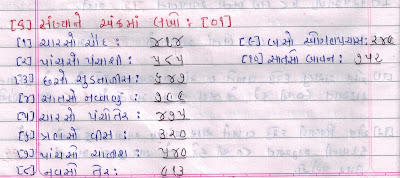 [ક] સંખ્યાને અંકમાં લખો : [૦૧]
[૧] ચારસો ચૌદ : ૪૧૪
[૨] પાંચસો પંચાશી : ૫૮૫
[૩] છસો સુડતાલીસ : ૬૪૭
[૪] સાતસો નવ્વાણું :
[૫] ચારસો પંચોતેર : ૪૭૫
[૬] ત્રણસો વીસ : ૩૨૦
[૭] પાંચસો ચાલીસ : ૫૪૦
[૮] નવસો તેર : ૯૧૩
[૯] બસો ઓગણપચાસ : ૨૪૯
[૧૦] સાતસો બાવન : ૭૫૨